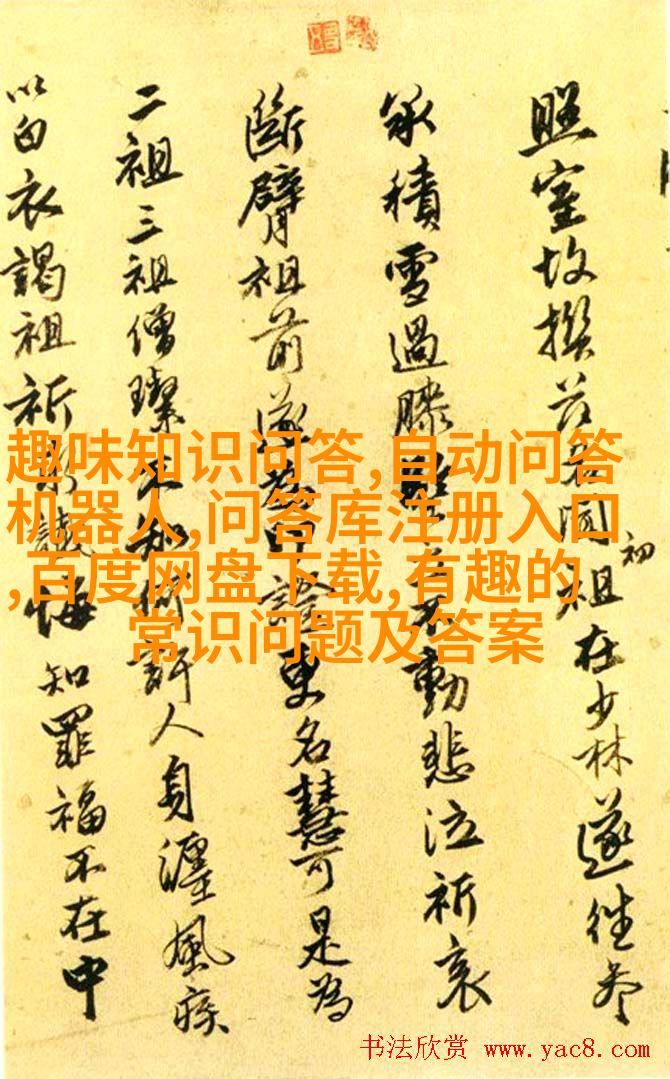 照室故撰聞初祖在少林遂往參
承積雪過膝不動悲泣祈哀
斷臂祖前遂印證更名慧可是為
二祖三祖僧璨不知何許人身纏風疾
以白衣謁祖祈悔知罪福不在中
趣味知识问答,自动问答
机器人,问答库注册入口
,百度网盘下载,有趣的
常识问题及答案
书法欣赏 www.yac8.com